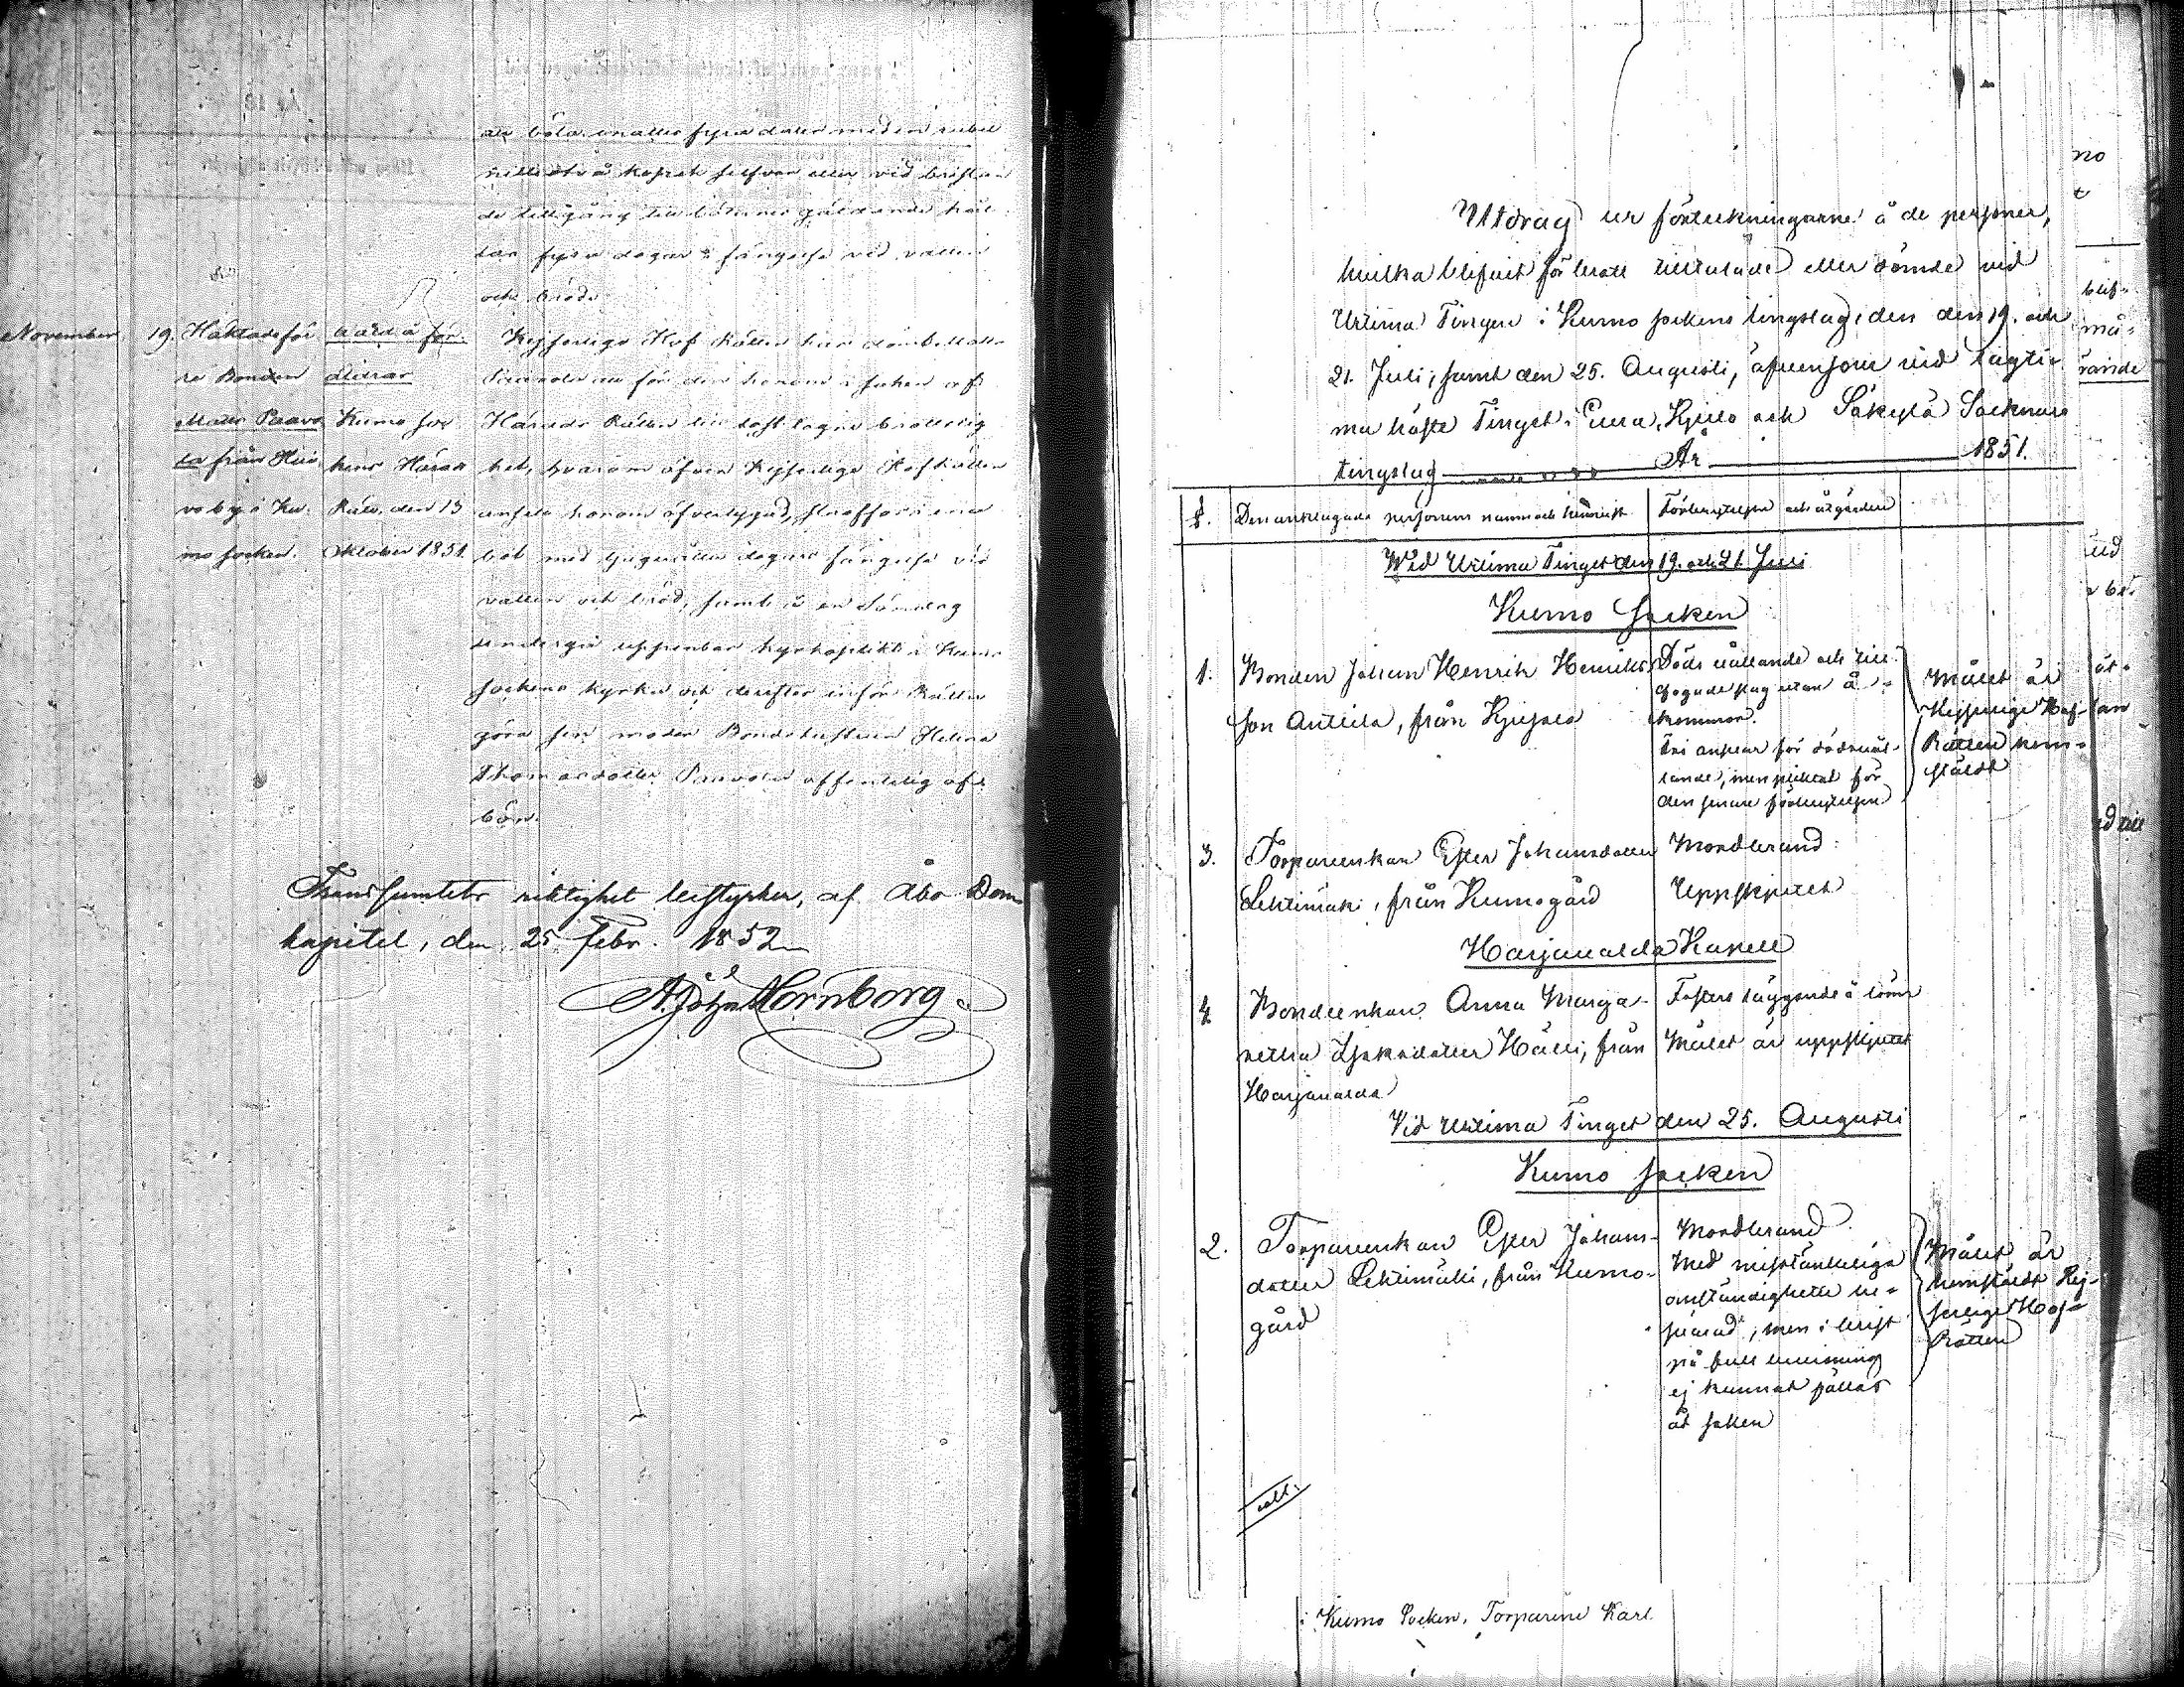 att böta sexatio fyra daler med en rubel
nittiotvå kopek silfver eller vid bristan
de tillgång till böternes gäldande hål
las fyra dagar i fängelse vid vatten
och bröd.
November 19. Häktade för våld å för-
re Bonden äldrar
Matts Paavo Kumo soc
la från Hui kens Härads
vo by i Ku Rätt. den 13
mo socken. Oktober 1851.
Kejserliga Hof Rätten har dömt Matts
Paavola att för den honom i saken af
Härads Rätten till last lagna brottslig
het, hvarom äfven Kejserliga Hof Rätten
ansett honom öfvertygad, straffas i ena
bot med tjuguåtta dagars fängelse vid
vatten och bröd, samt å en Söndag
undergå uppenbar kyrkoplikt i Kumo
sockens kyrka och derefter inför Rätten
göra sin moder Bondehustrun Helena
Thomasdotter Paavola offentelig af-
bön.
Transsumtets riktighet bestyrker, af Åbo Dom
kapitel, den 25 Febr. 1852
A. Joh. Hornborg
Utdrag ur förteckningarne å de personer,
hvilka blifvit för brott tilltalade eller dömde vid
Urtima Tingen i Kumo sockens tingslag, den den 19. och
21. Juli, samt den 25. Augusti, äfvensom vid lagti-
ma höste Tinget i Eura, Kjulo och Säkylä Socknars
tingslag År 1851.
§. Den anklagade personens namn och hemvist Förbrytelsen och åtgärden
Wid Urtima Tinget den 19. och 21. Juli
Kumo Socken
1. Bonden Johan Henrik Henriks-
son Anttila, från Kjulo
Dåds vållande och till-
fogade slag utan å-
kommor.
Fri anses för dådvål-
lande, men pliktat för
den senare förbrytelsen
Målet är
Kejserliga Hof-
Rätten hem-
stäldt
3. Torpareenkan Ester Johansdotter
Lehtimäki, från Kumogård
Mordbrand:
Uppskjutet
Harjavalda Kapell
4. Bondeenkan Anna Marga-
retha Isaksdotter Hälli, från
Harjavalda
Fosters läggande å lönn
Målet är uppskjutet
Vid Urtima Tinget den 25. Augusti
Kumo Socken
2. Torpareenkan Ester Johans-
dotter Lehtimäki, från Kumo-
gård
Mordbrand.
Med misstänkeliga
omständigheter be-
svärad, men i brist
på full bevisning
ej kunnat fällas
åt saken
Målet är
hemstäldt Kej-
serliga Hof-
Rätten
i Kumo Socken, Torparene Karl